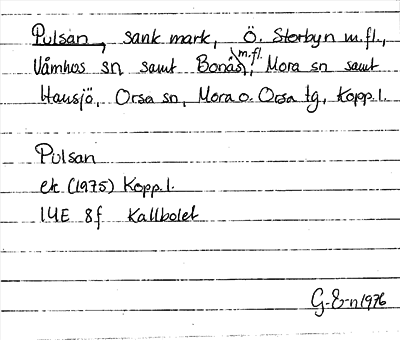 Pulsan, sank mark, Ö. Storbyn m.fl.,
Våmhus sn samt Bonäs m.fl., Mora sn samt
Hansjö, Orsa sn, Mora o. Orsa tg, Kopp.l.
Pulsan
ek. (1975) Kopp.l.
14E 8f Kallbolet
G. E-n 1976